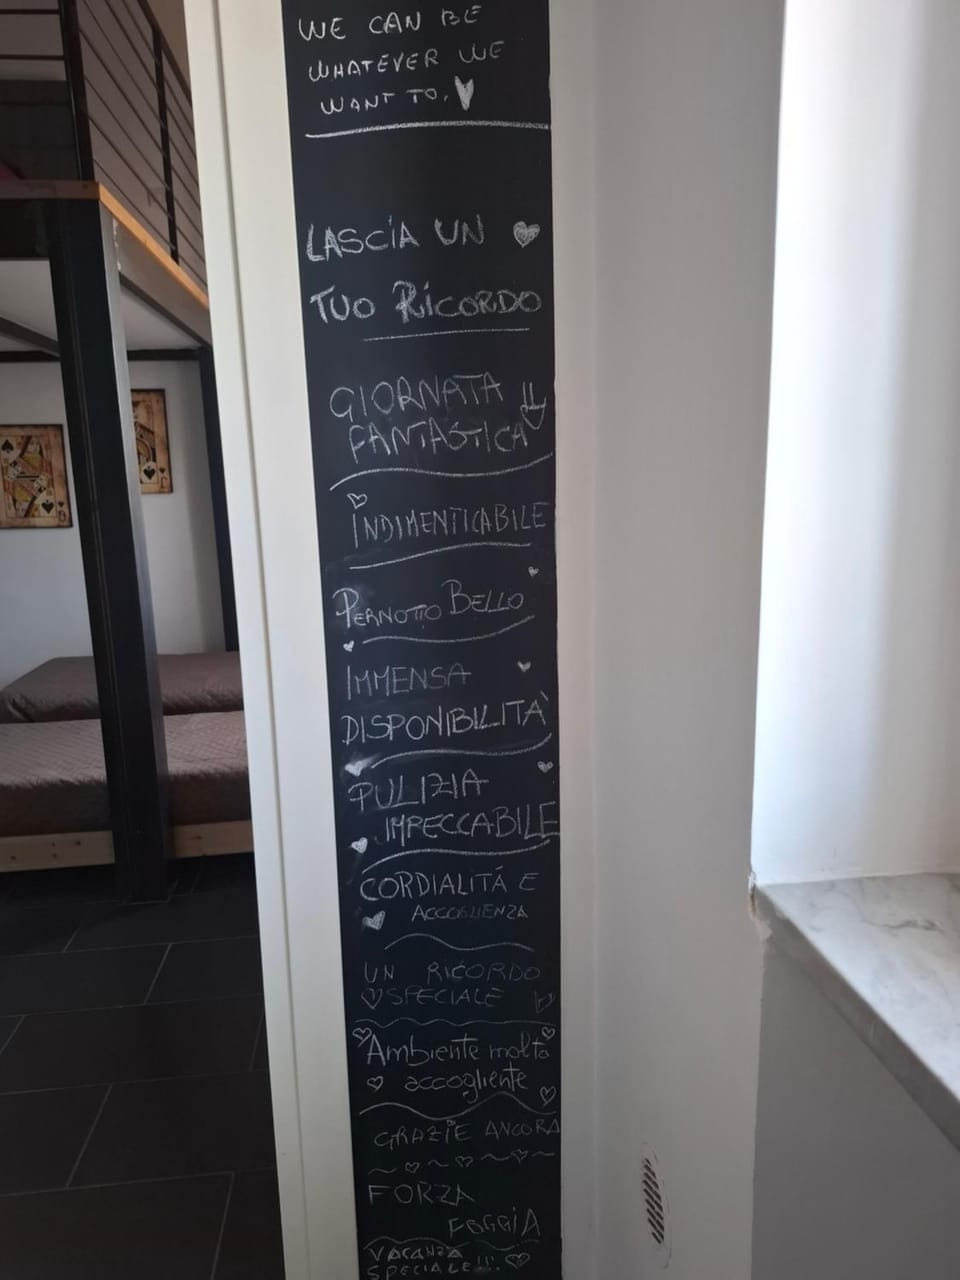 WE CAN BE
WHATEVER WE
WANT TO.
LASCIA UN
TUO RICORDO
GIORNATA
FANTASTICA
INDIMENTICABILE
PERNOTTO BELLO
IMMENSA
DISPONIBILITÀ
PULIZIA
IMPECCABILE
CORDIALITÁ E
ACCOGLIENZA
UN RICORDO
SPECIALE
Ambiente molto
accogliente
GRAZIE ANCORA
FORZA
FOGGIA
VACANZA
SPECIALE!!!